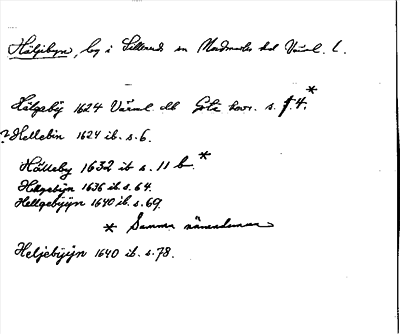 Häljebyn, by i Sillerud sn Nordmarks hd Värml. l.
Hälgeby 1624 Värml dll Göta hovr. s. 4.*
? Hellebin 1624 ib. s. 6.
Hälleby 1632 ib s. 11 b.*
Hellgebÿn 1636 ib. s. 64.
Hellgebÿyn 1640 ib. s. 69.
* Samma
Heljebÿyn 1640 ib. s. 78.